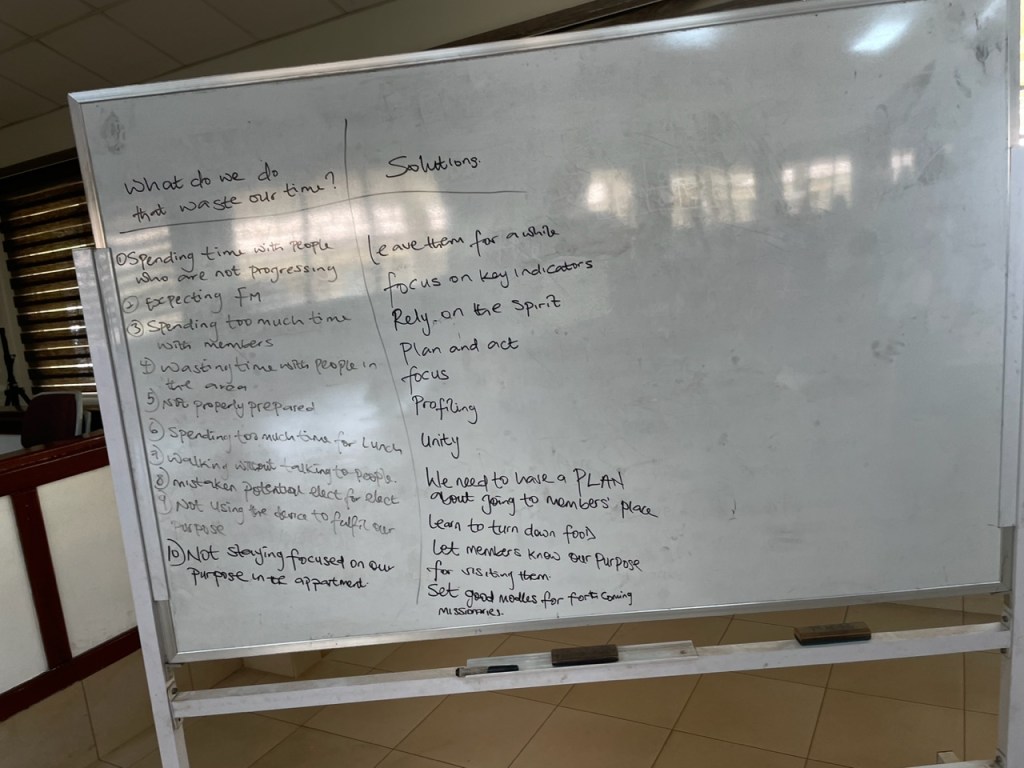 What do we do
that waste our time?
① Spending time with people
who are not progressing
② Expecting FM
③ Spending too much time
with members
4) Wasting time with people in
the area
5) Not properly prepared
⑥ Spending too much time for Lunch
⑦ Walking without talking to people.
⑧ mistaken potential elect for elect
9) Not using the device to fulfil our
purpose
10) Not staying focused on our
purpose in te appartment.
Solutions.
Leave them for a while
focus on key indicators
Rely on the Spirit
Plan and act
focus
Profiling
Unity
We need to have a PLAN
about going to members' place
Learn to turn down food
Let members know our Purpose
for visiting them.
Set good for forth coming
missionaries.